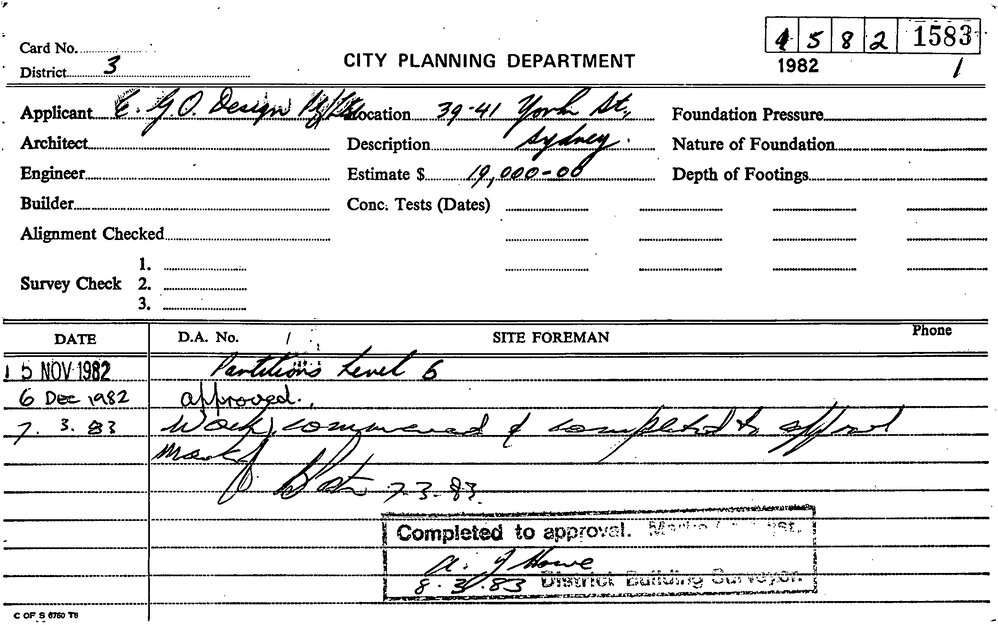 4 5 8 2 1583
Card No.
CITY PLANNING DEPARTMENT
District 3
1982 1
Applicant E. G.O. Design P/L Location 39-41 York St, Foundation Pressure
Architect Description Sydney. Nature of Foundation
Engineer Estimate $ 19,000-00 Depth of Footings
Builder Conc. Tests (Dates)
Alignment Checked
1.
Survey Check 2.
3.
DATE D.A. No. SITE FOREMAN Phone
15 NOV 1982 Partitions Level 6
6 DEC 1982 approved.
7. 3. 83 Work commenced & completed to approval
Mark
7-3-83.
Completed to approval.
A. J Howe
8.3.83 District Building Surveyor.
C OF S 6750 T8